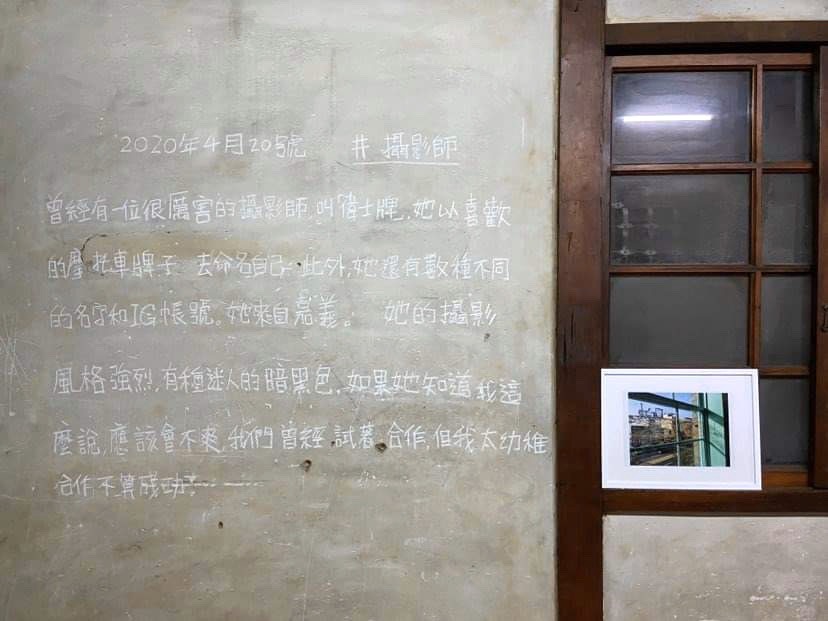 2020年4月20號 # 攝影師
曾經有一位很厲害的攝影師,叫偉士牌,她以喜歡
的摩托車牌子 去命名自己,此外,她還有數種不同
的名字和IG帳號。她來自嘉義。 她的攝影
風格強烈,有種迷人的暗黑色,如果她知道我這
麼說,應該會不爽,我們曾經試著合作,但我太幼稚
合作不算成功。